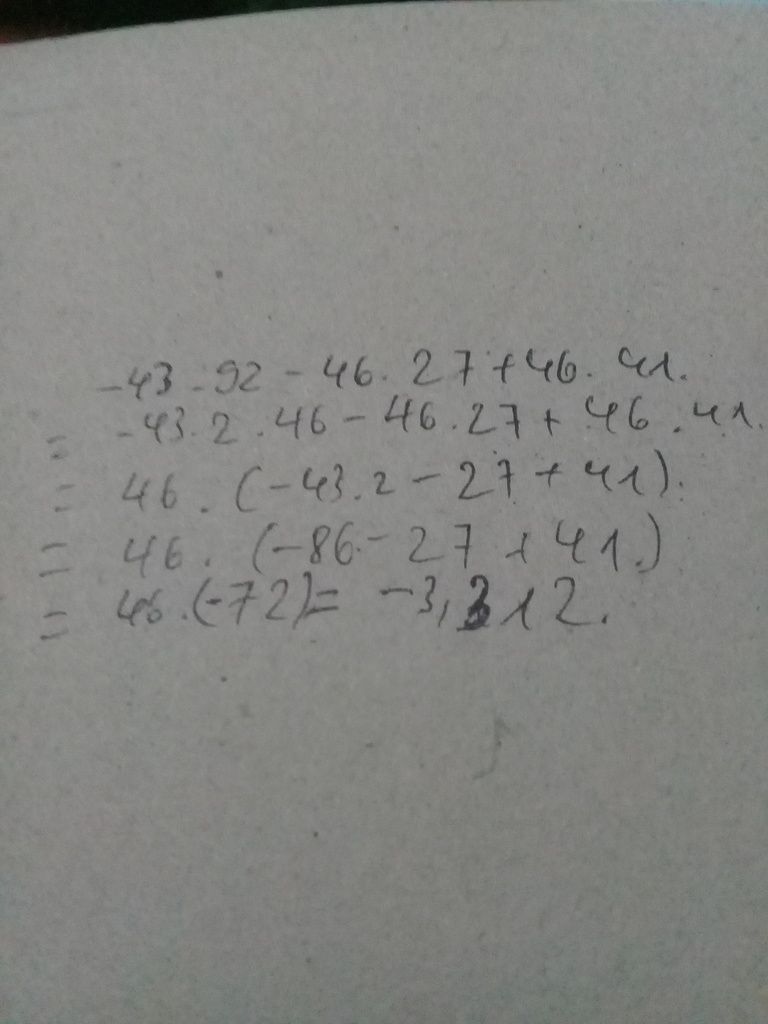 -43.92 - 46.27 + 46.41.
= -43.2.46 - 46.27 + 46.41.
= 46.(-43.2 - 27 + 41).
= 46.(-86 - 27 + 41.)
= 46.(-72) = -3,312.